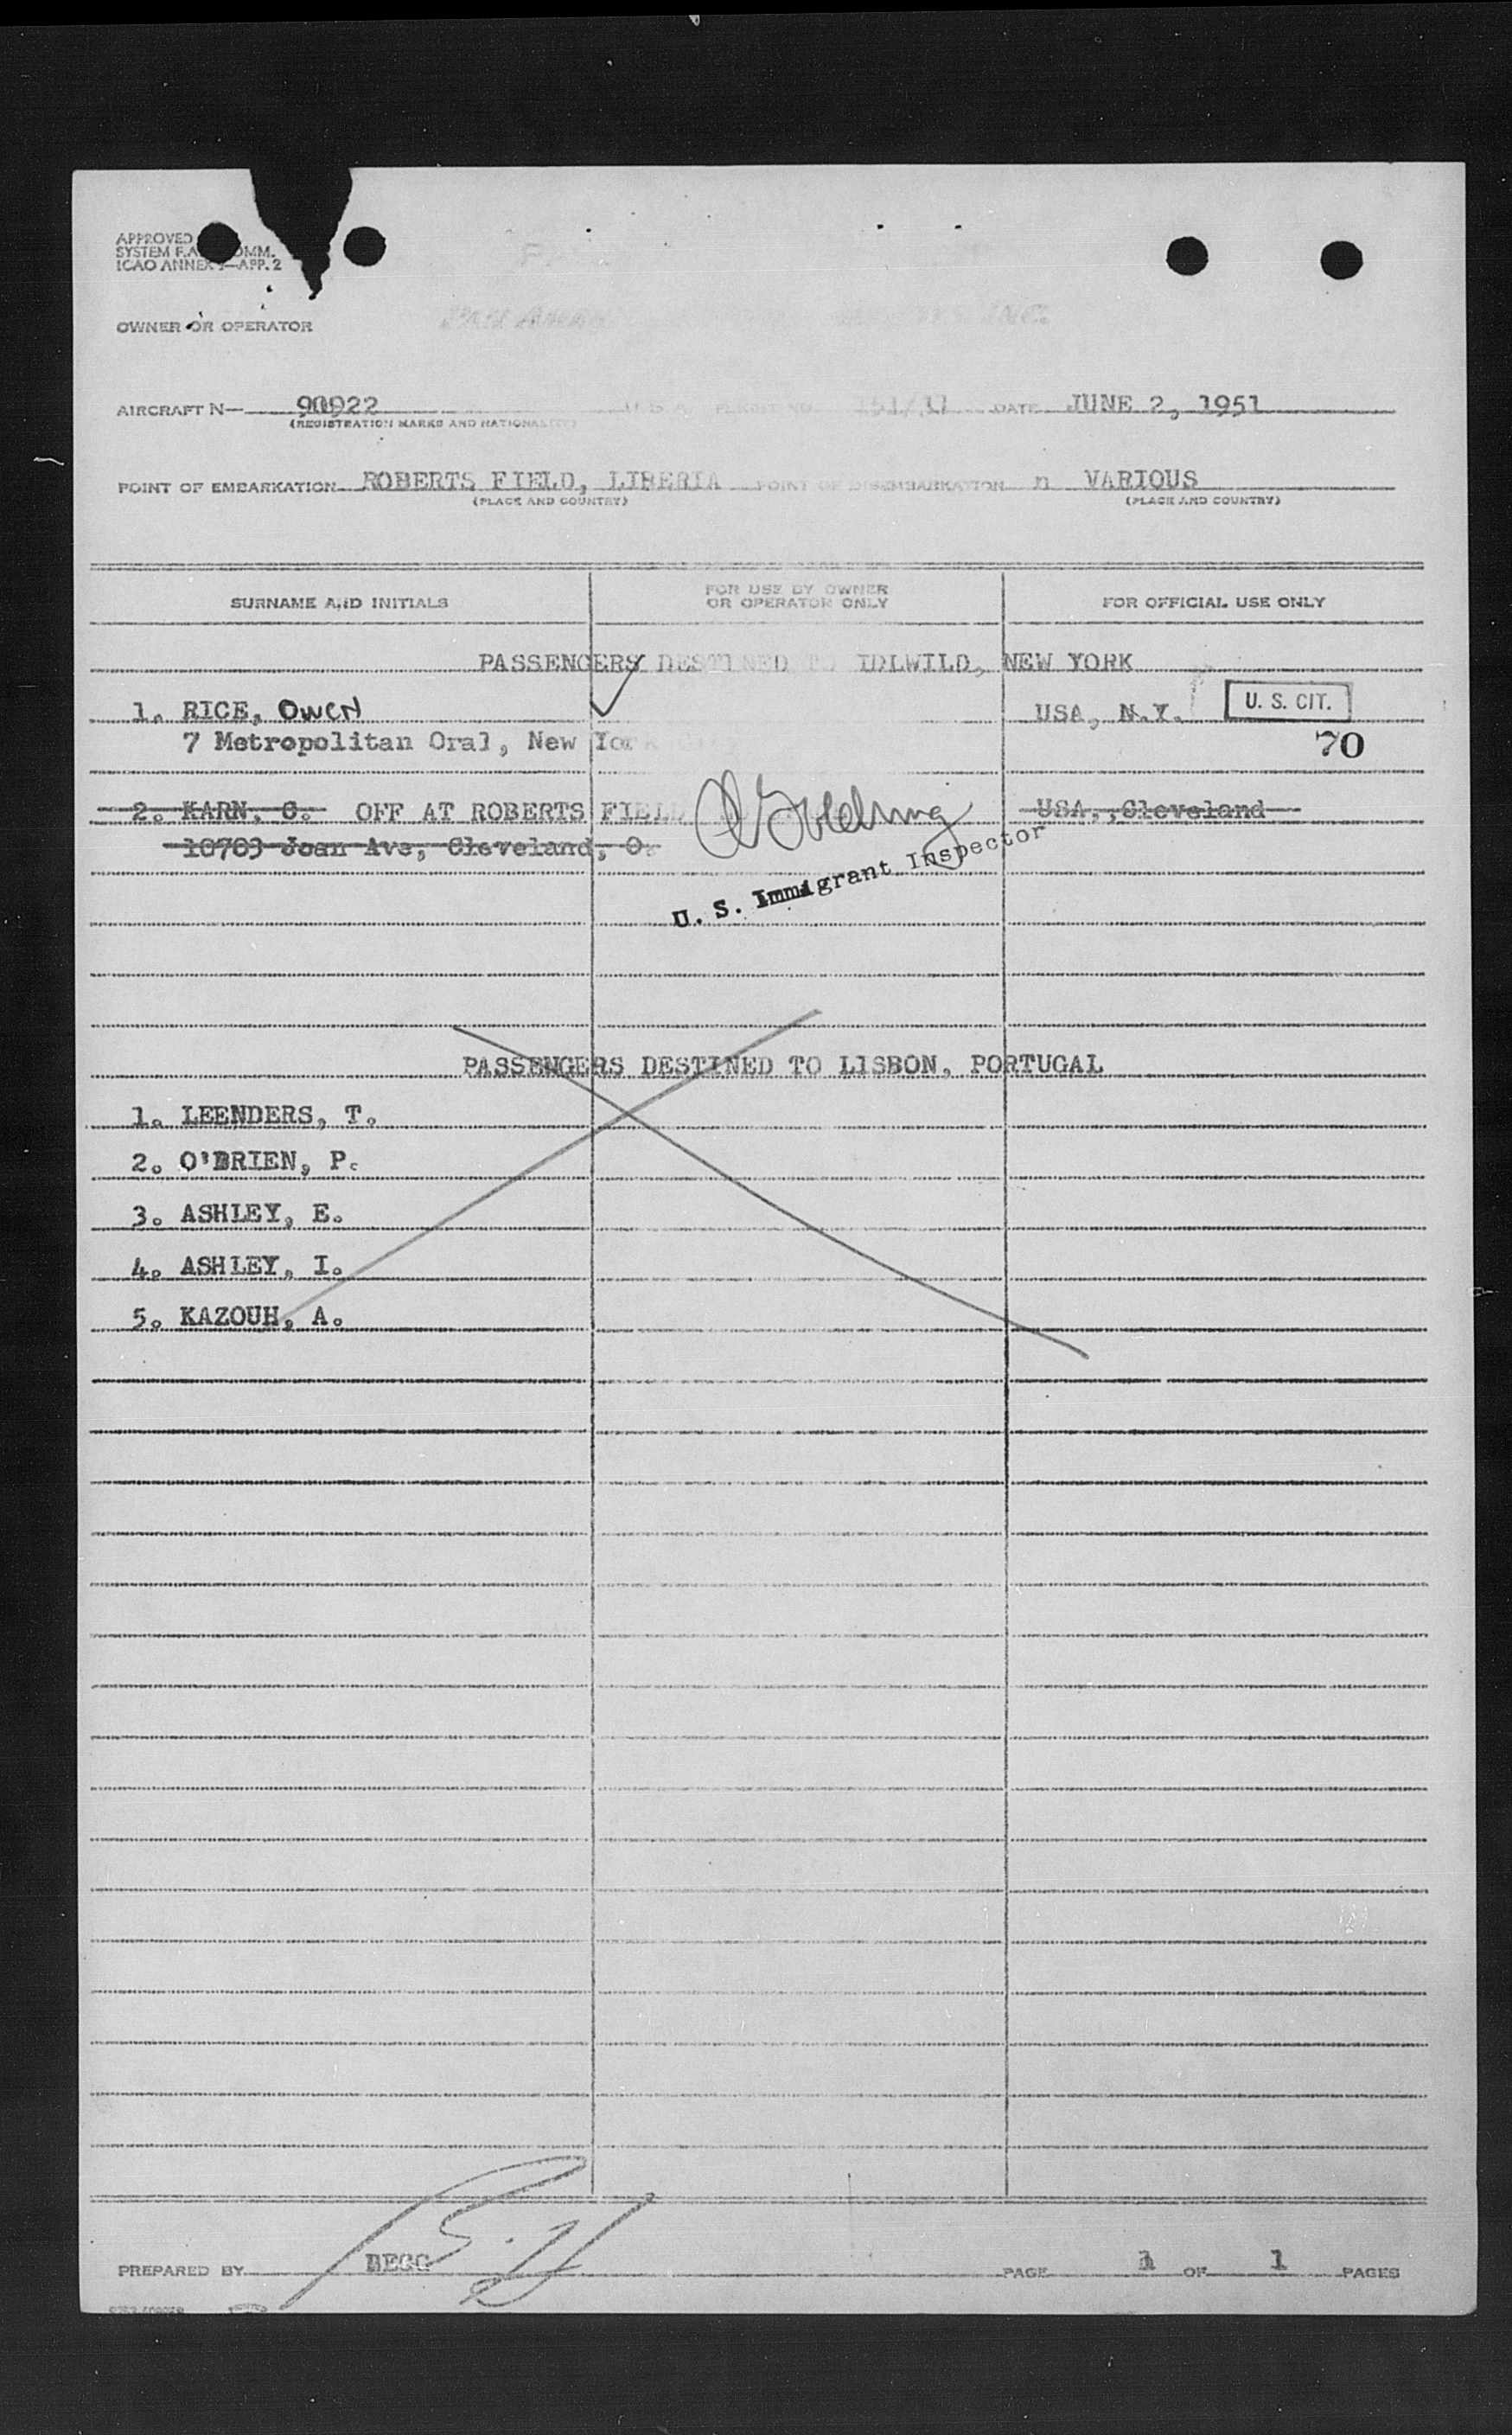 APPROVED
SYSTEM F.A. COMM.
ICAO ANNEX 9—APP. 2
OWNER OR OPERATOR INC.
AIRCRAFT N— 90922 U.S.A. FLIGHT NO. 151/31 DATE JUNE 2, 1951
(REGISTRATION MARKS AND NATIONALITY)
POINT OF EMBARKATION ROBERTS FIELD, LIBERIA POINT OF DISEMBARKATION n VARIOUS
(PLACE AND COUNTRY) (PLACE AND COUNTRY)
SURNAME AND INITIALS FOR USE BY OWNER OR OPERATOR ONLY FOR OFFICIAL USE ONLY
PASSENGERS DESTINED TO IDLWILD, NEW YORK
1. RICE, Owen USA, N.Y. U. S. CIT.
7 Metropolitan Oral, New York 70
2. KARN, C. OFF AT ROBERTS FIELD USA, ,Cleveland
10703 Joan Ave, Cleveland, O.
U. S. Immigrant Inspector
PASSENGERS DESTINED TO LISBON, PORTUGAL
1. LEENDERS, T.
2. O'BRIEN, P.
3. ASHLEY, E.
4. ASHLEY, I.
5. KAZOUH, A.
PREPARED BY BEGG PAGE 1 OF 1 PAGES